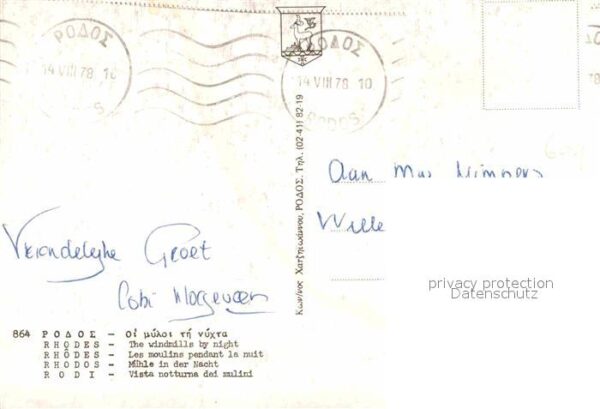 ΡΟΔΟΣ
14 VIII 78 10
S
ΡΟΔΟΣ
14 VIII 78 10
RODOS
Κων/νος Χατζηιωάννου, ΡΟΔΟΣ. Τηλ. (02-41) 82-19
Aan
Wille
Vriendelyke Groet
Cobi
privacy protection
Datenschutz
864 ΡΟΔΟΣ – Οἱ μύλοι τή νύχτα
RHODES – The windmills by night
RHODES – Les moulins pendant la nuit
RHODOS – Mühle in der Nacht
RODI – Vista notturna dei mulini